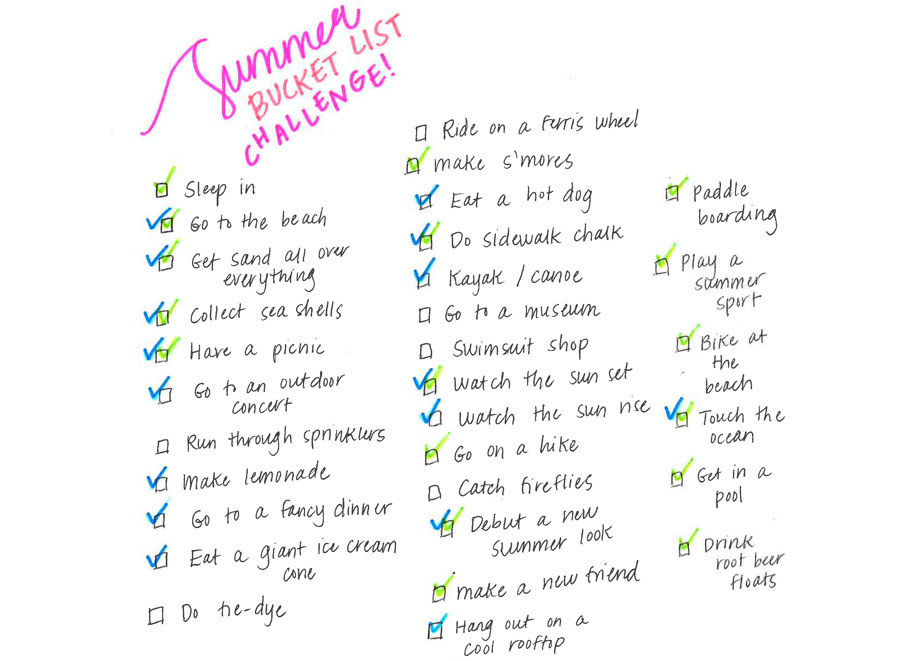 Summer
BUCKET LIST
CHALLENGE!
Sleep in
Go to the beach
Get sand all over
everything
Collect sea shells
Have a picnic
Go to an outdoor
concert
Run through sprinklers
Make lemonade
Go to a fancy dinner
Eat a giant ice cream
cone
Do tie-dye
Ride on a ferris wheel
make s'mores
Eat a hot dog
Do sidewalk chalk
Kayak / canoe
Go to a museum
Swimsuit shop
Watch the sun set
Watch the sun rise
Go on a hike
Catch fireflies
Debut a new
summer look
make a new friend
Hang out on a
cool rooftop
Paddle
boarding
Play a
summer
sport
Bike at
the
beach
Touch the
ocean
Get in a
pool
Drink
root beer
floats